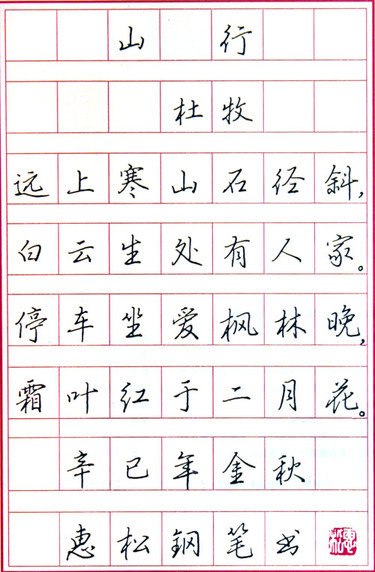 山行
杜牧
远上寒山石径斜,
白云生处有人家。
停车坐爱枫林晚,
霜叶红于二月花。
辛巳年金秋
惠松钢笔书
惠松